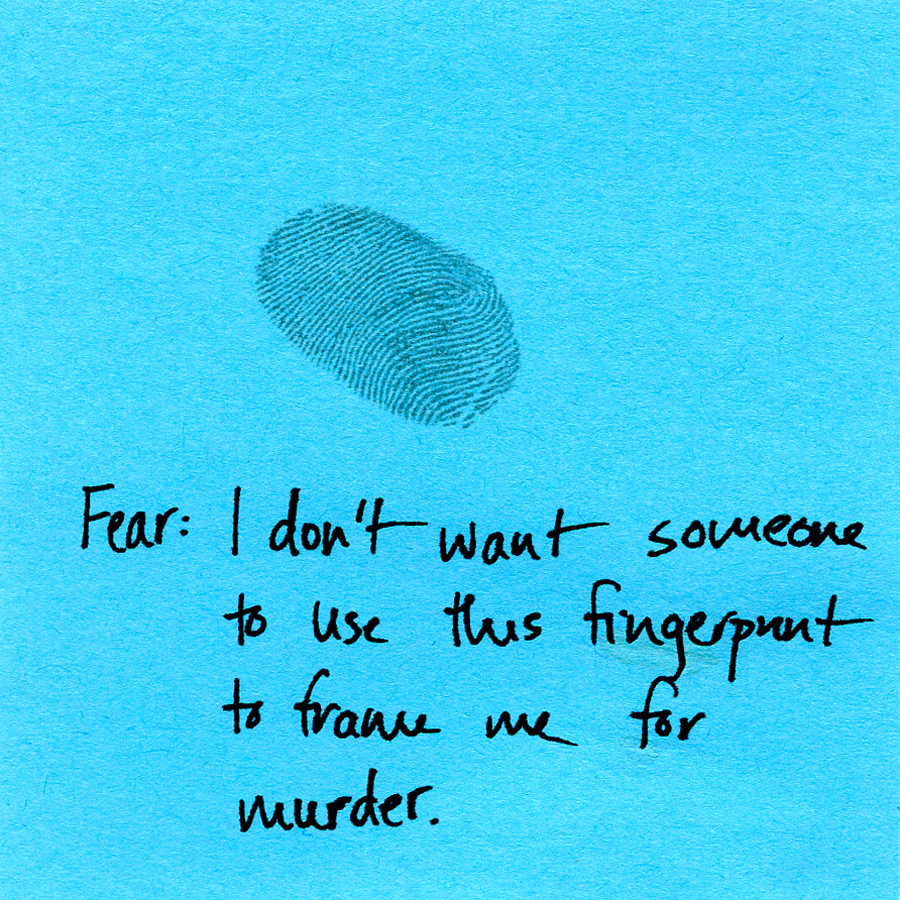 Fear: I don't want someone
to use this fingerprint
to frame me for
murder.